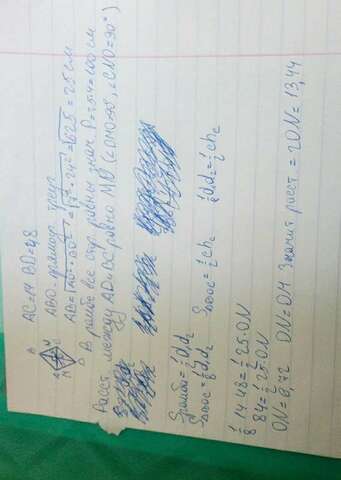 AC=14 BD=48
ABO - прямоуг. треуг.
AB=√AO²+BO²=√7²+24²=√625=25 см
В ромбе все стор равны знач P=25·4=100 см
Расст между AD и BC равно MN (∠DMO=90°, ∠CNO=90°)
Sромба=½d₁d₂
S△BOC=⅛d₁d₂ S△BOC=½ch꜀ ⅛d₁d₂=½ch꜀
⅛14·48=½25·ON
84=½25·ON
ON=6,72 ON=OM Значит расст=2ON=13,44